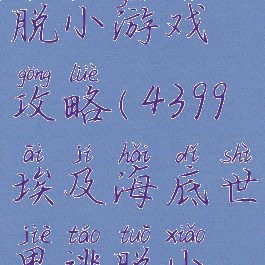 脱小游戏
gōng lüè
攻略(4399
āi jí hǎi dǐ shì
埃及海底世
jiè táo tuō xiǎo
界逃脱小